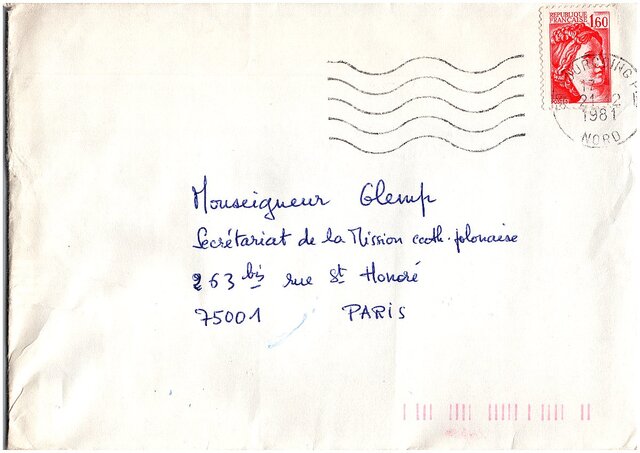 REPUBLIQUE
FRANCAISE
1,60
21-2
1981
NORD
Monseigneur Glemp
Secrétariat de la Mission cath. polonaise
263 bis rue St Honoré
75001 PARIS